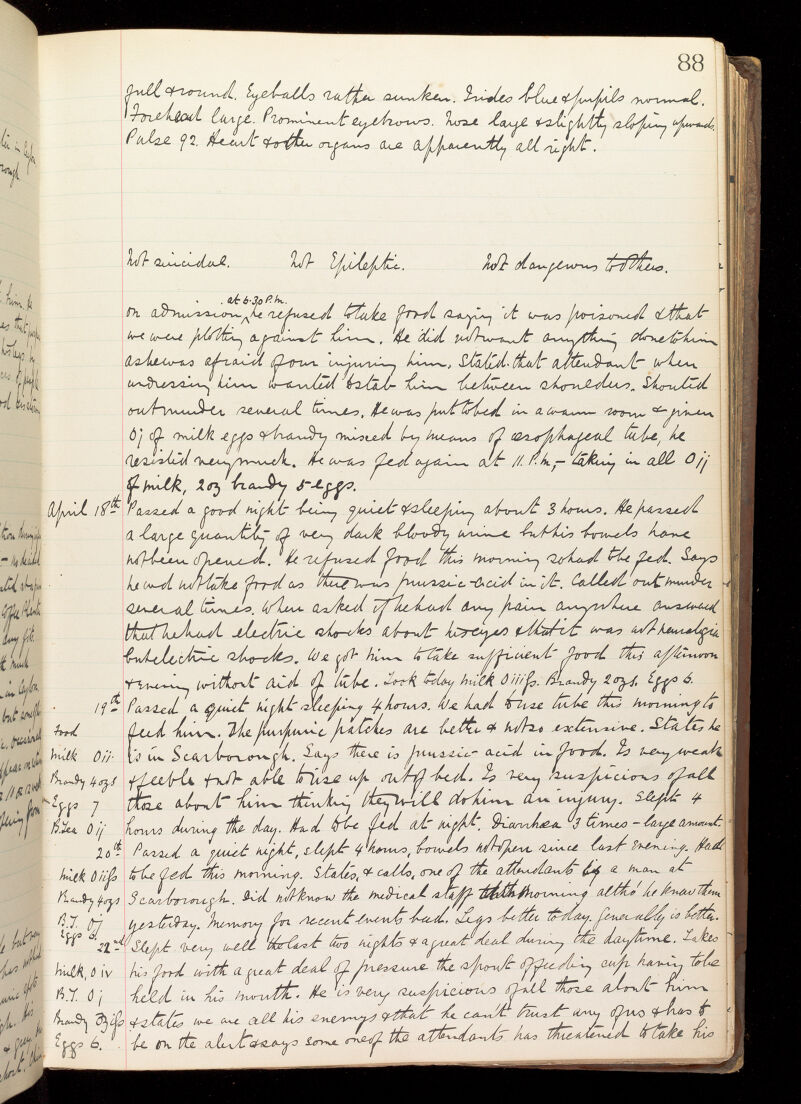 88
full & round. Eyeballs rather sunken. Irides blue & pupils normal.
Forehead large. Prominent eyebrows. Nose large & slightly sloping upwards.
Pulse 92. Heart & other organs are apparently all right.
Not suicidal. Not Epileptic. Not dangerous to others.
at 6.30 P.m.
On admission he refused to take food saying it was poisoned & that
we were plotting against him. He did not want anything done to him
as he was afraid of our injuring him. Stated that attendant when
undressing him wanted to stab him between shoulders. Shouted
out murder several times. He was put to bed in a warm room & given
Oj of milk eggs & brandy mixed by means of œsophageal tube, he
resisted very much. He was fed again at 11 P.m, – taking in all O ij
of milk, 2 oz brandy 5 eggs.
April 18th Passed a good night being quiet & sleeping about 3 hours. He passed
a large quantity of very dark bloody urine but his bowels have
not been opened. He refused food this morning so had to be fed. Says
he will not take food as there was prussic-acid in it. Called out murder
several times. When asked if he had any pain anywhere answered
that he had electric shocks about his eyes & that it was not neuralgia
but electric shocks. We got him to take sufficient food this afternoon
& evening without aid of tube. Took today Milk O iiifs. Brandy 2 ozs. Eggs 6.
19th Passed a quiet night sleeping 4 hours. We had to use tube this morning to
Food feed him. The purpuric patches are better & not so extensive. States he
Milk O ii. is in Scarborough. Says there is prussic acid in food. Is very weak
Brandy 4 ozs & feeble & not able to rise up out of bed. Is very suspicious of all
Eggs 7 those about him thinking they will do him an injury. Slept 4
B. Tea O ij hours during the day. Had to be fed at night. Diarrhœa 3 times – large amount.
20th Passed a quiet night, slept 4 hours, bowels not open since last evening. Had
Milk O iifs to be fed this morning. States, & calls, one of the attendants is a man at
Brandy 4 ozs Scarborough. Did not know the medical staff this morning altho' he knew them
B.T. Oj yesterday. Memory for recent events bad. Legs better today. Generally is better.
Eggs 6
22nd Slept very well the last two nights & a great deal during the daytime. Takes
Milk, O iv his food with a great deal of pressure the spout of feeding cup having to be
B.T. O j held in his mouth. He is very suspicious of all those about him
Brandy & states we are all his enemys & that he can't trust any of us & has to
Eggs 6. be on the alert & says some one of the attendants has threatened to take his